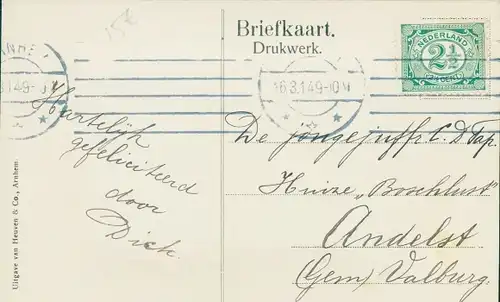 15€
Briefkaart.
Drukwerk.
NEDERLAND
2½
CENT
16.3.14.9-10 V
Hartelijk
gefeliciteerd
door
Dick
De jongejuffr. C. D. Tap.
Huize „Boschlust"
Andelst
(Gem) Valburg.
Uitgave van Heuven & Co., Arnhem.